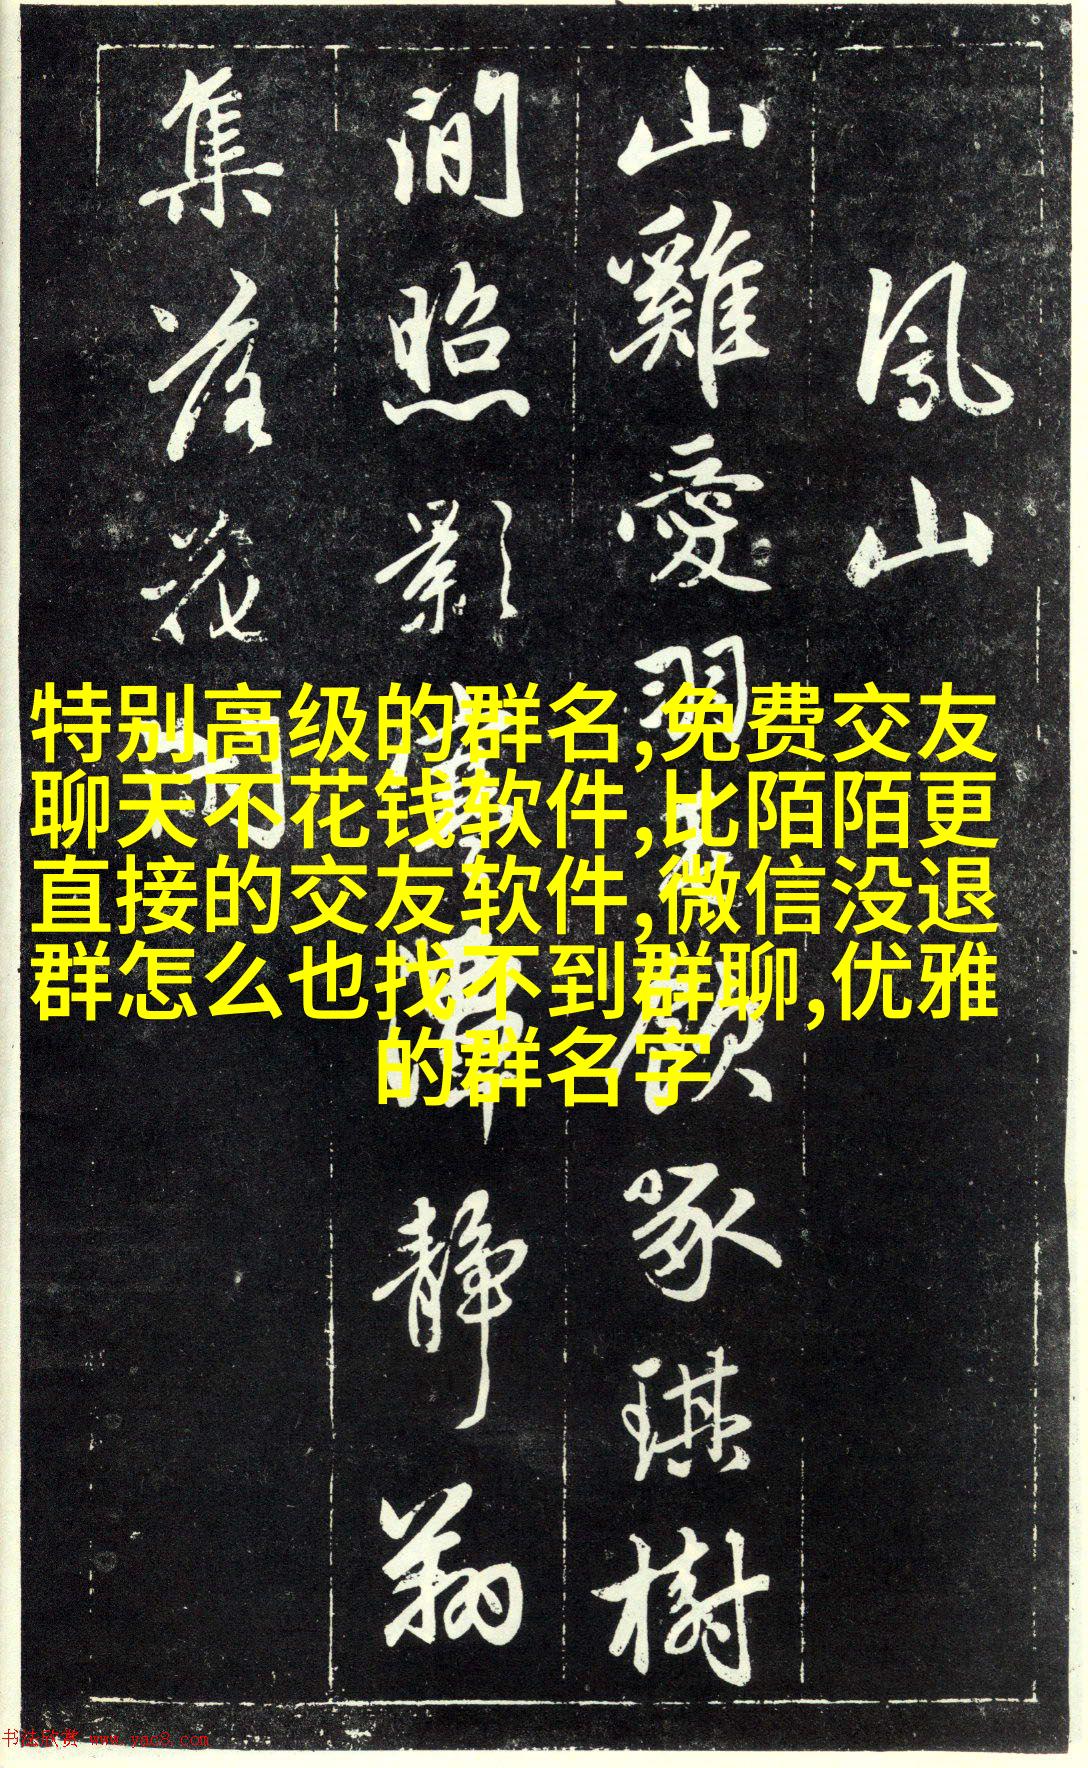 鳳山
山雞愛羽
顧啄琪樹
間照影
静翔
集落花
特别高级的群名,免费交友
聊天不花钱软件,比陌陌更
直接的交友软件,微信没退
群怎么也找不到群聊,优雅
的群名字
书法欣赏 www.yac8.com